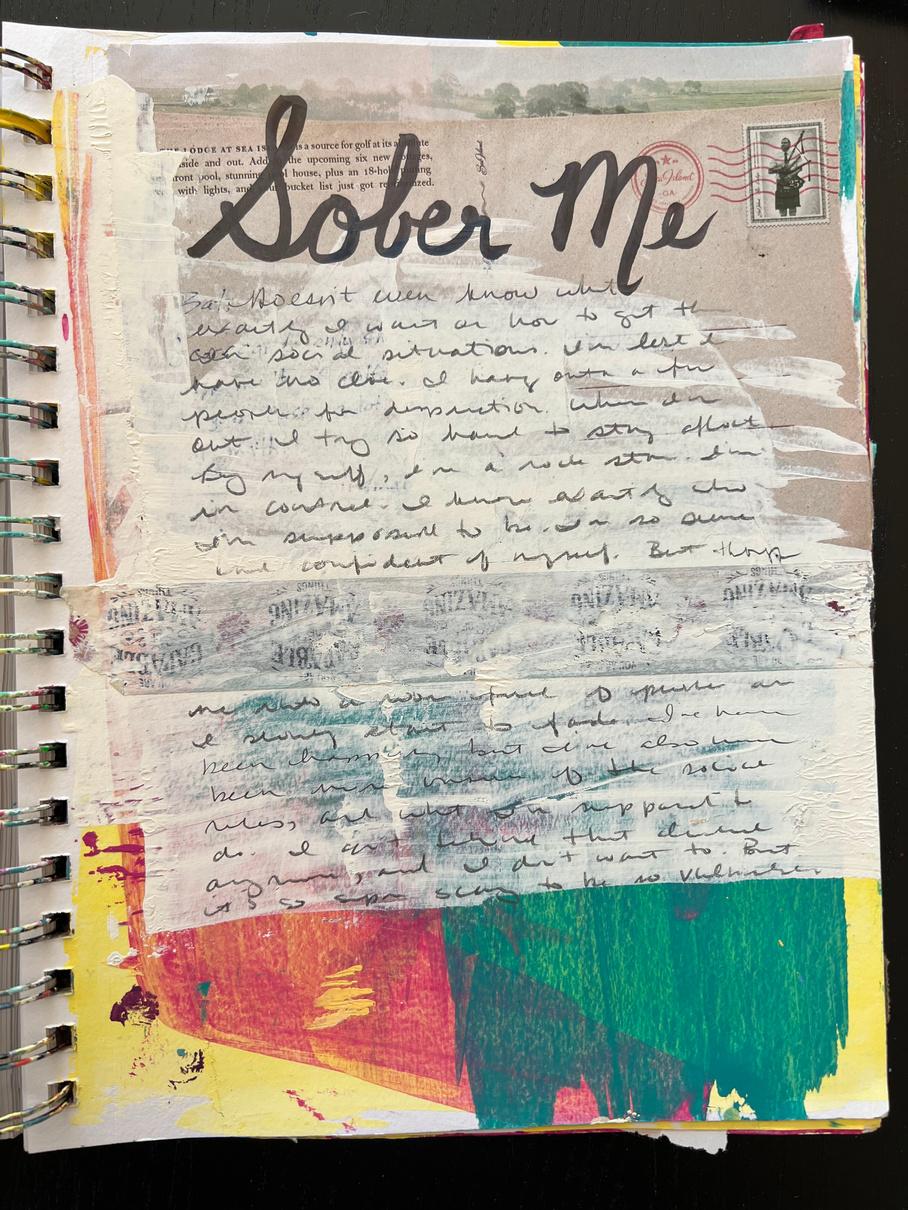 THE LODGE AT SEA IS is a source for golf at its absolute
side and out. Add the upcoming six new cottages,
front pool, stunning pool house, plus an 18-hole putting
with lights, and your bucket list just got re
Sea Island
GA
Sober Me
Doesn't even know what
exactly I want or how to get th
social situations. I'm lost I
have no clue. I hang onto a few
people for
out I try so hard to stay afloat
By myself, I'm a rock star. I'm
in control. I know exactly who
I'm supposed to be. I'm so secure
and confident of myself. But throw
THINGS
AMAZING AMAZING AMAZING AMAZING AMAZING
me into a room and
I slowly start to fade. I've
been happier, but I've also
been more unsure of the social
rules, and what I'm supposed to
do. I can't behind that
anymore, and I don't want to. But
it's so super scary to be so vulnerable.